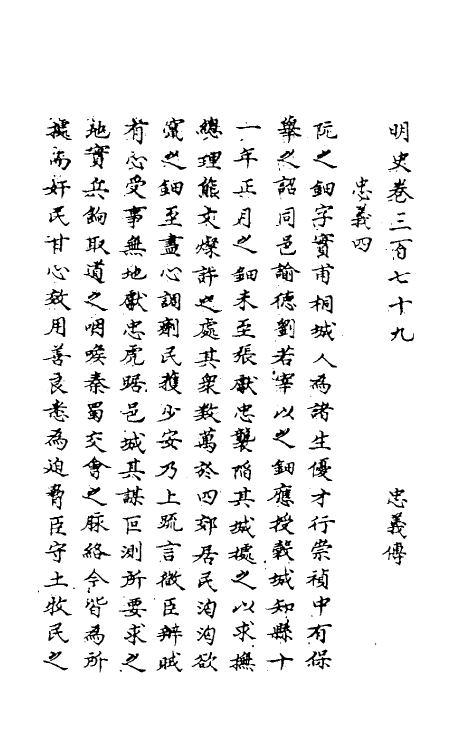 明史卷三百七十九　忠義傳
忠義四
阮之鈿字實甫桐城人為諸生優才行崇禎中有保
舉之詔同邑諭德劉若宰以之鈿應授穀城知縣十
一年正月之鈿未至張獻忠襲陷其城據之以求撫
總理熊文燦許之處其衆數萬於四郊居民洶洶欲
竄之鈿至盡心調劑民獲少安乃上疏言微臣辦賊
有心受事無地獻忠虎踞邑城其謀叵測所要求之
地實兵餉取道之咽喉秦蜀交會之脈絡今皆為所
據而奸民甘心效用善良悉為迫脅臣守土牧民之